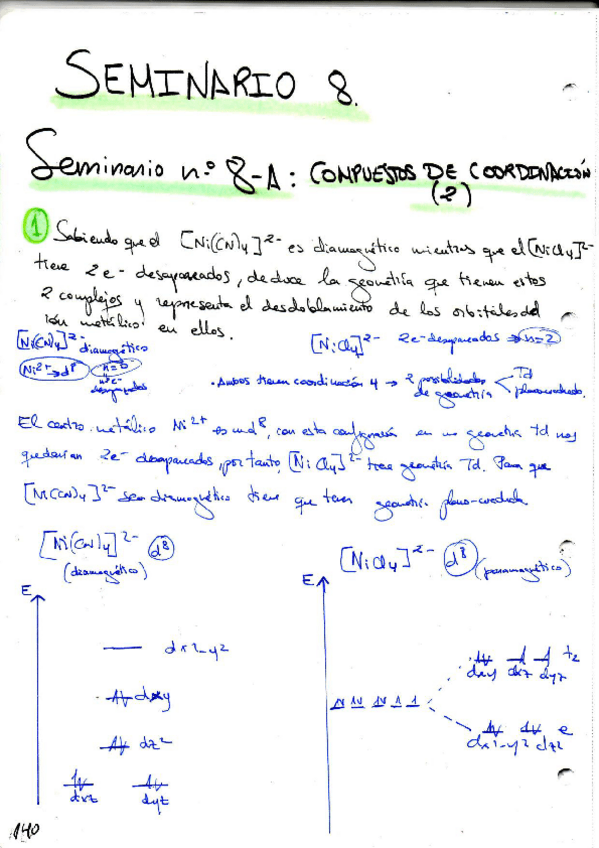 SEMINARIO 8.
Seminario nº 8-A: COMPUESTOS DE COORDINACIÓN
(2)
1 Sabiendo que el [Ni(CN)4]2- es diamagnético mientras que el [NiCl4]2-
tiene 2 e- desapareados, deduce la geometría que tienen estos
2 complejos y representa el desdoblamiento de los orbitales del
ión metálico en ellos.
[Ni(CN)4]2- diamagnético
[NiCl4]2- 2e- desapareados → n=2
Ni2+ → d8 n=0
nº e-
desapareados
• Ambos tienen coordinación 4 → 2 posibilidades de geometría < Td
plano-cuadrado.
El centro metálico Ni2+ es un d8, con esta configuración en una geometría Td nos
quedarían 2e- desapareados, por tanto, [NiCl4]2- tiene geometría Td. Para que
[Ni(CN)4]2- sea diamagnético tiene que tener geometría plano-cuadrada.
[Ni(CN)4]2- d8
(diamagnético)
[NiCl4]2- d8 (paramagnético)
E
dx2-y2
dxy
dz2
dxz dyz
E
t2
dxy dxz dyz
e
dx2-y2 dz2
140